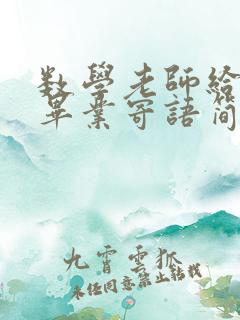 数學老師給
畢業寄語簡
九霄雲狐
未經同意禁止轉載